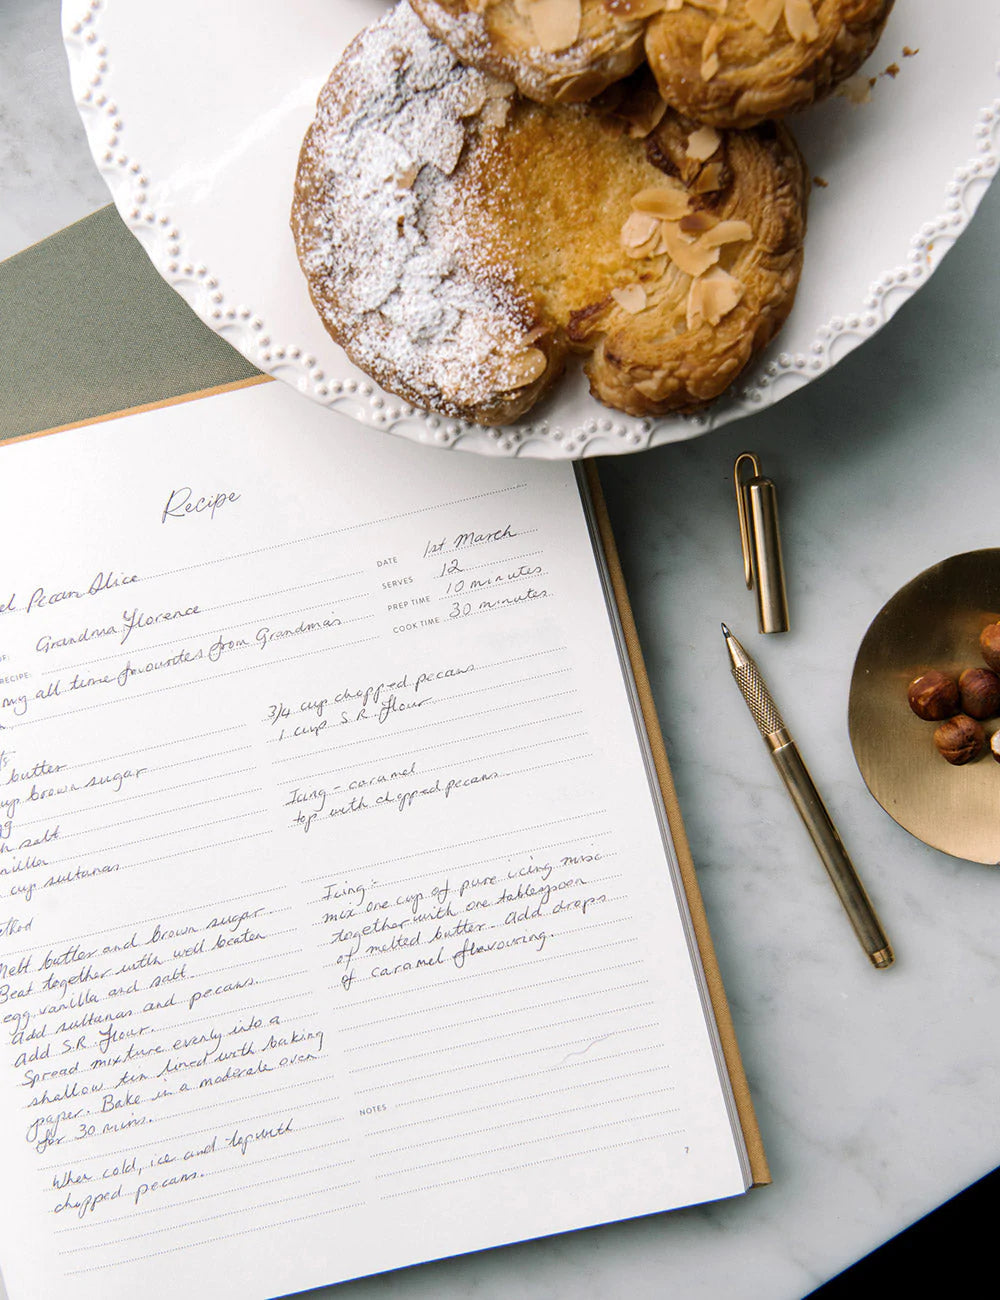 Recipe
el Pecan Slice
DATE 1st March
Grandma Florence
SERVES 12
RECIPE: my all time favourites from Grandma's
PREP TIME 10 minutes
COOK TIME 30 minutes
butter
up brown sugar
gg
salt
nilla
cup sultanas
3/4 cup chopped pecans
1 cup S.R. flour
Icing - caramel
top with chopped pecans
thod
Melt butter and brown sugar
Beat together with well beaten
egg, vanilla and salt
Add sultanas and pecans.
Add S.R. flour.
Spread mixture evenly into a
shallow tin lined with baking
paper. Bake in a moderate oven
for 30 mins.
When cold, ice and top with
chopped pecans.
Icing:-
mix one cup of pure icing mix
together with one tablespoon
of melted butter. Add drops
of caramel flavouring.
NOTES
7